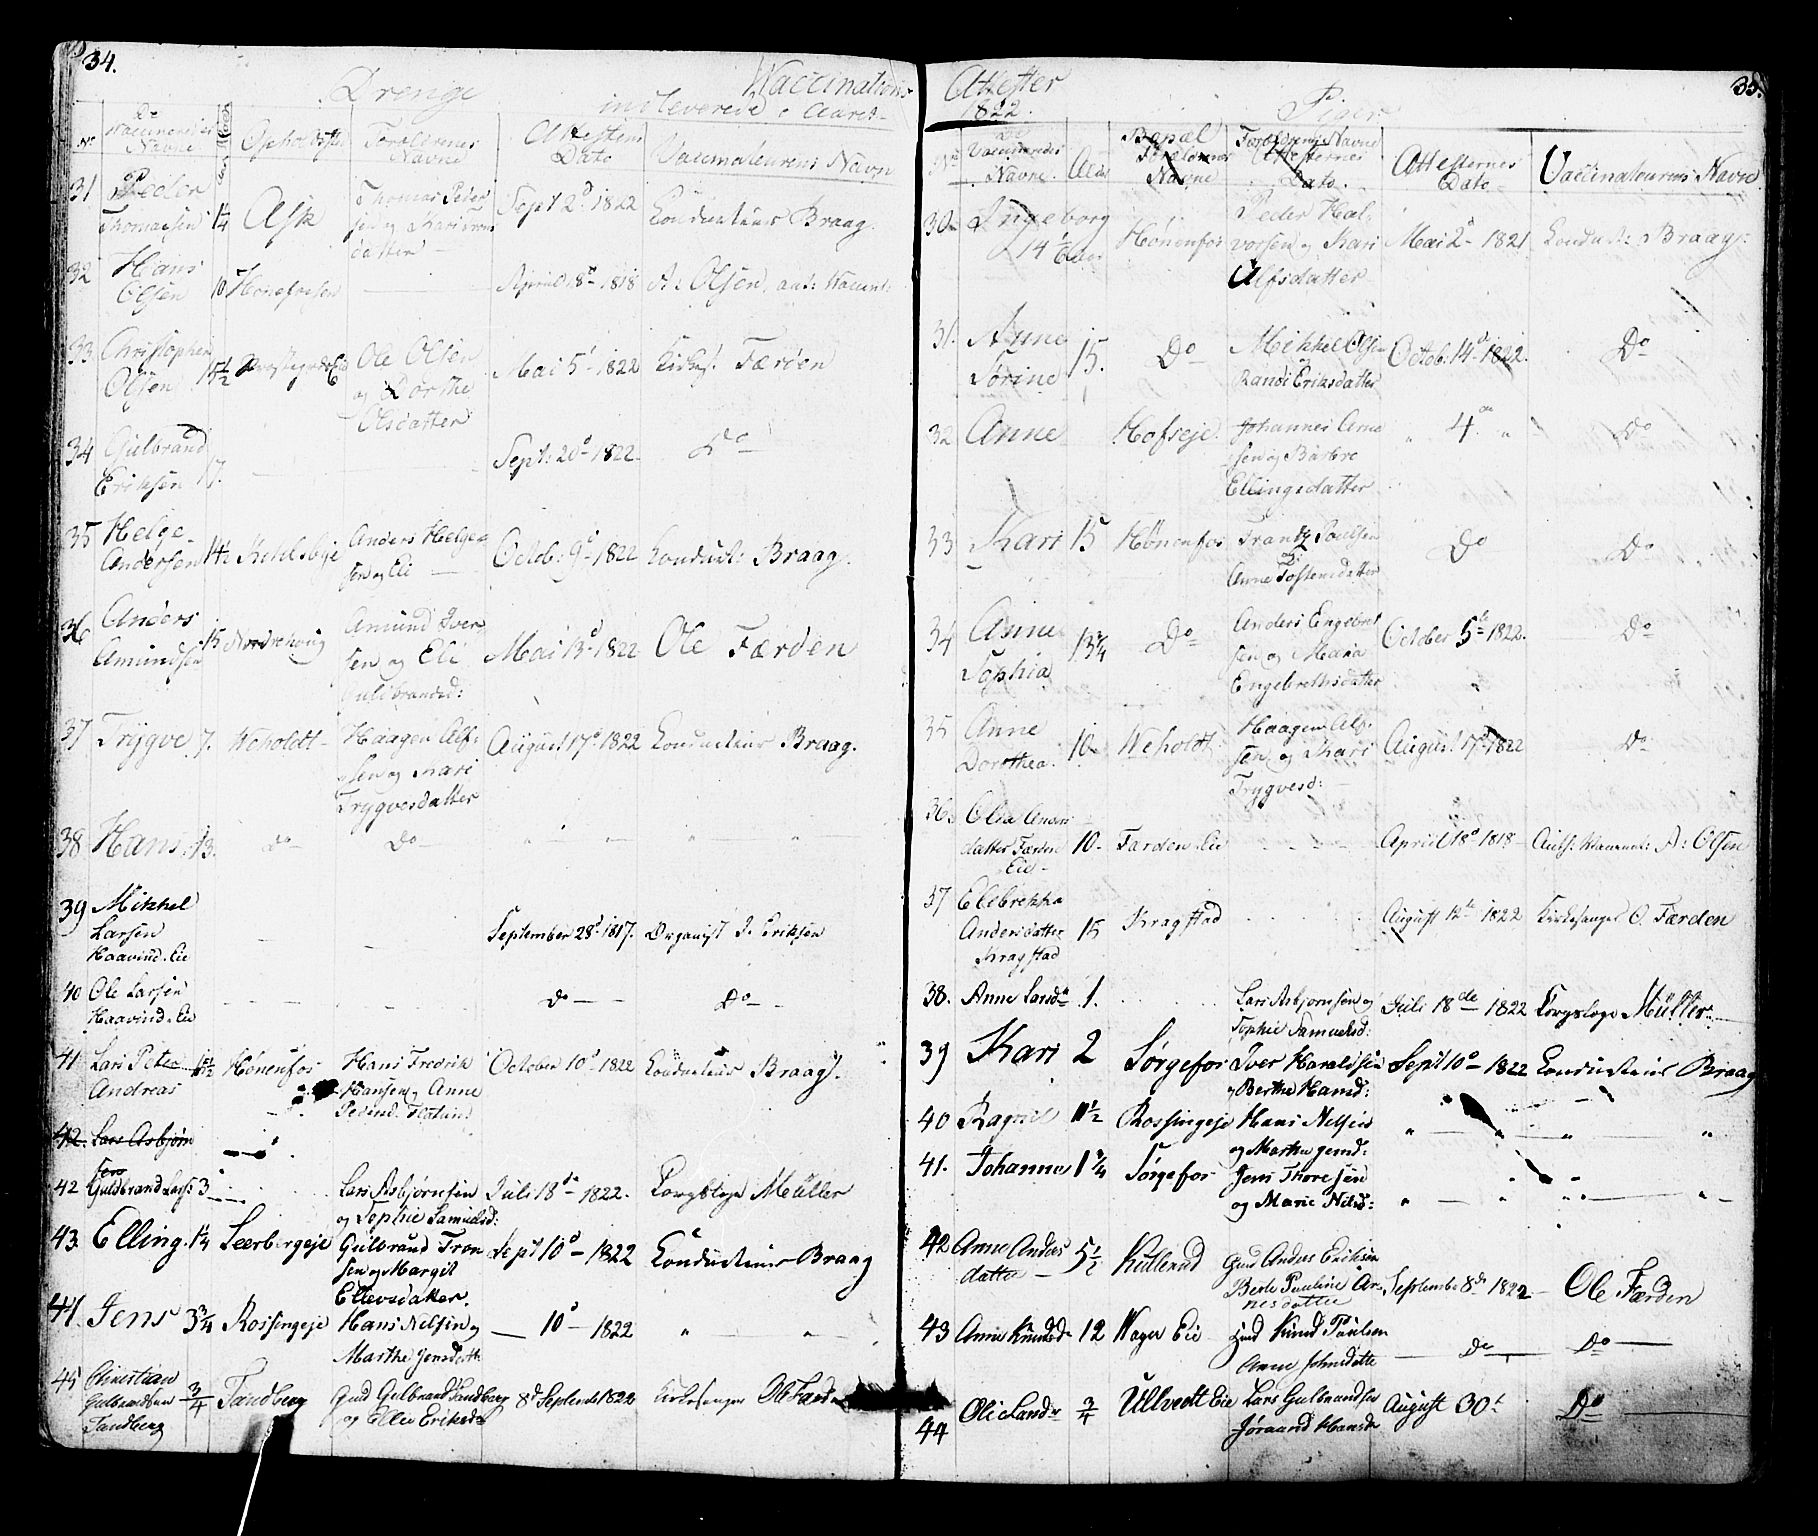 34.
Drenge
Vaccinations
indleverede i Aaret
No
De Vaccineredes Navne
Opholdssted
Forældrenes Navne
Attestens Dato
Vaccinateurens Navn
31 Peder Thomassen 1¼ Ask Thomas Peder
sen og Kari
datter
Sept 2d 1822 Conducteur Braag.
32 Hans Olsen 10 Hønefossen April 18d 1818 A: Olsen, aut: Vaccint:
33 Christopher Olsen 15½ Ole Olsen
og Dorthe
Olsdatter
Mai 5t 1822 Kirkes. Færden
34 Gulbrand Eriksen 17. Sept: 20d 1822. Do
35 Helge Andersen 14½ Anders Helge-
sen og Eli
Octob: 9d 1822 Conduct: Braag.
36 Anders Amundsen 15 Norderhoug Amund Iver
sen og Eli
Gulbrandsd:
Mai 13d 1822 Ole Færden
37 Trygve 7. Weholdt Haagen Alf-
sen og Kari
Trygvesdatter
August 17d 1822 Conducteur Braag.
38 Hans 13. Do Do " "
39 Mikkel
Larsen
Haavind. Eie
September 28d 1817. Organist J. Eriksen
40 Ole Larsen
Haavind. Eie
Do Do
41 Lars Peter
Andreas
1½ Hønenfos Hans Fredrik
Hansen og Anne
October 10d 1822 Conducteur Braag.
42. Lars Asbjørn
sen
42 Gulbrand Lars: 3 Lars Asbjørnsen
og Sophie Samuelsd:
Juli 18de 1822. Corpslæge Müller
43. Elling. 1¼ Leerbergeje Gulbrand Tron
sen og Margit
Ellevsdatter.
Sept 10d 1822 Conducteur Braag
44. Jens 3¾ Rossingeje Hans Nilsen og
Marthe Jensdatt
10d 1822 " "
45 Christian
Gulbrandsen
Tandberg
¾ Tandberg Gud Gulbrand Tandberg
og Ellie Eriksd
8d September 1822 Kirkesanger Ole Færd
35.
Attester
1822.
Piger
No
De Vaccineredes Navne.
Alder
Bopæl
Forældrenes Navne
Forældrenes Navne
Attesternes Dato.
Attesternes Dato
Vaccinateurens Navn
30 Ingeborg
14 1/6 Aar
Hønenfos Peder Hal-
vorsen og Kari
Alfsdatter
Mai 2d 1821 Conduct: Braag:
31. Anne Sørine 15. Do Mikkel Olsen
Randi Eriksdatter
Octob: 14d 1822. Do
32 Anne Hofseje. Johannes Arne
sen og Barbre
Ellingsdatter
" 4de " Do
33 Kari 15 Hønenfos Frantz Poulsen
Anne Tostensdatter
Do Do
34 Anne
Sophia
13¾ Do Anders Engebret
sen og Maria
Engebrethsdatter
October 5te 1822. Do
35 Anne
Dorothea.
10 Weholdt Haagen Alf-
sen og Kari
Trygvesd:
August 17d 1822 Do
36. Olia Anders
datter Færden
Eie
10. Færden. Eie April 18d 1818 Auth: Vaccint: A: Olsen
37 Elebrekka
Andersdatter
Kragstad
15 Kragstad August 12te 1822 Kirkesanger O. Færden
38. Anne Larsd 1. Lars Asbjørnsen og
Sophie Samuelsd:
Juli 18de 1822 Corpslæge Müller
39 Kari 2 Sørgefos Iver Haraldsen
og Berthe Hansd:
Sept 10d 1822 Conducteur Braag
40 Ragnil 11½ Rossingeje Hans Nilsen
og Marthe Jensd:
" " " "
41. Johanne 1¾ Sørgefos Jens Thoresen
og Marie Nilsd:
" " " "
42 Anne Anders
datter
5½ Kulterud Gmd Anders Eriksen
Berte Pauline Ar-
nesdatter
September 8d 1822 Ole Færden
43 Anne Knudsd 12 Wager Eie Gmd Knud Paulsen
Anne Johnsdatte
Do Do
44 Oli Larsd ¾ Ullvedt Eie Lars Gulbrandsen
Jøraand Hansd
August 30t Do